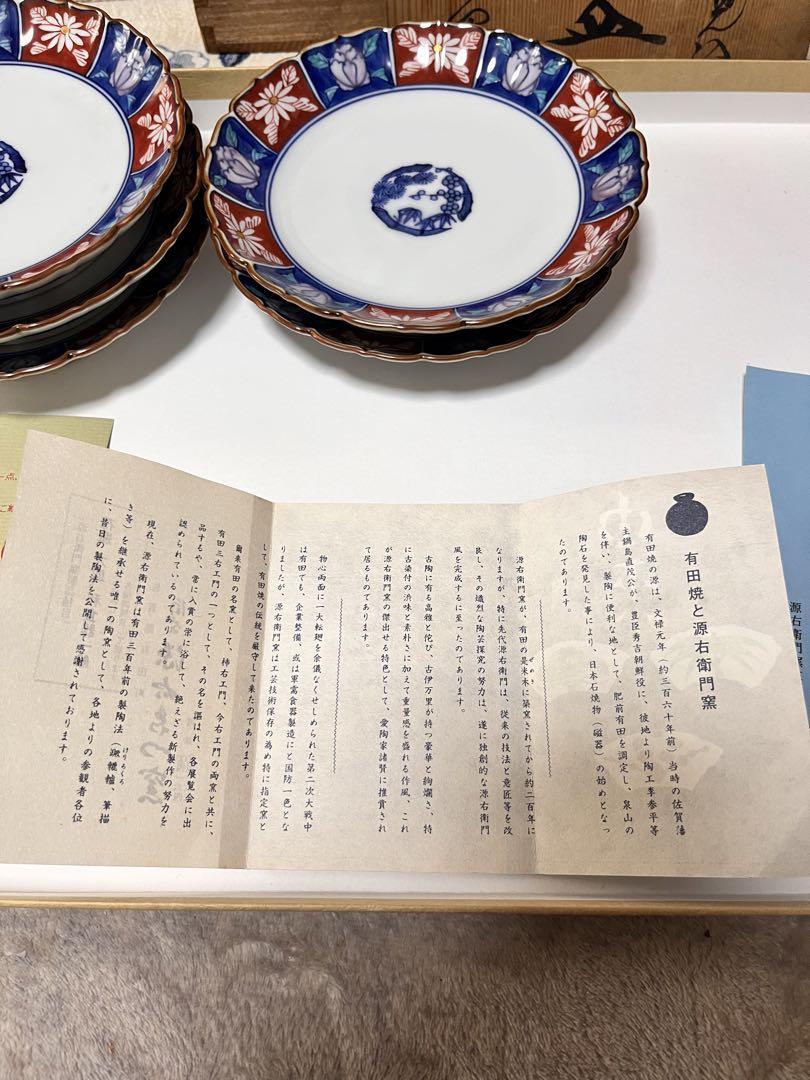 有田焼と源右衛門窯
有田焼の源は、文禄元年（約三百六十年前）当時の佐賀藩
主鍋島直茂公が、豊臣秀吉朝鮮役に、彼地より陶工李参平等
を伴い、製陶に便利な地として、肥前有田を調定し、泉山の
陶石を発見した事により、日本石焼物（磁器）の始めとなっ
たのであります。
源右衛門窯が、有田の是米木に築窯されてから約二百年に
ぜき
なりますが、特に先代源右衛門は、従来の技法と意匠等を改
良し、その熾烈な陶芸探究の努力は、遂に独創的な源右衛門
風を完成するに至ったのであります。
古陶に有る高雅と侘び、古伊万里が持つ豪華と絢爛さ、特
に古染付の渋味と素朴さに加えて重量感を盛れる作風、これ
が源右衛門窯の傑出せる特色として、愛陶家諸賢に推賞され
て居るものであります。
物心両面に一大転廻を余儀なくせしめられた第二次大戦中
は有田でも、企業整備、或は軍需食器製造にと国防一色とな
りましたが、源右衛門窯は工芸技術保存の為め特に指定窯と
して、有田焼の伝統を厳守して来たのであります。
爾来有田の名窯として、柿右エ門、今右エ門の両窯と共に、
有田三右エ門の一つとして、その名を謳はれ、各展覧会に出
品するや、常に入賞の栄に浴して、絶えざる新製作の努力を
認められているのであります。
現在、源右衛門窯は有田三百年前の製陶法（蹴轆轤、筆描
けりろくろ
き等）を継承せる唯一の陶窯として、各地よりの参観者各位
に、昔日の製陶法を公開して感謝されております。
一点、
源右衛門窯